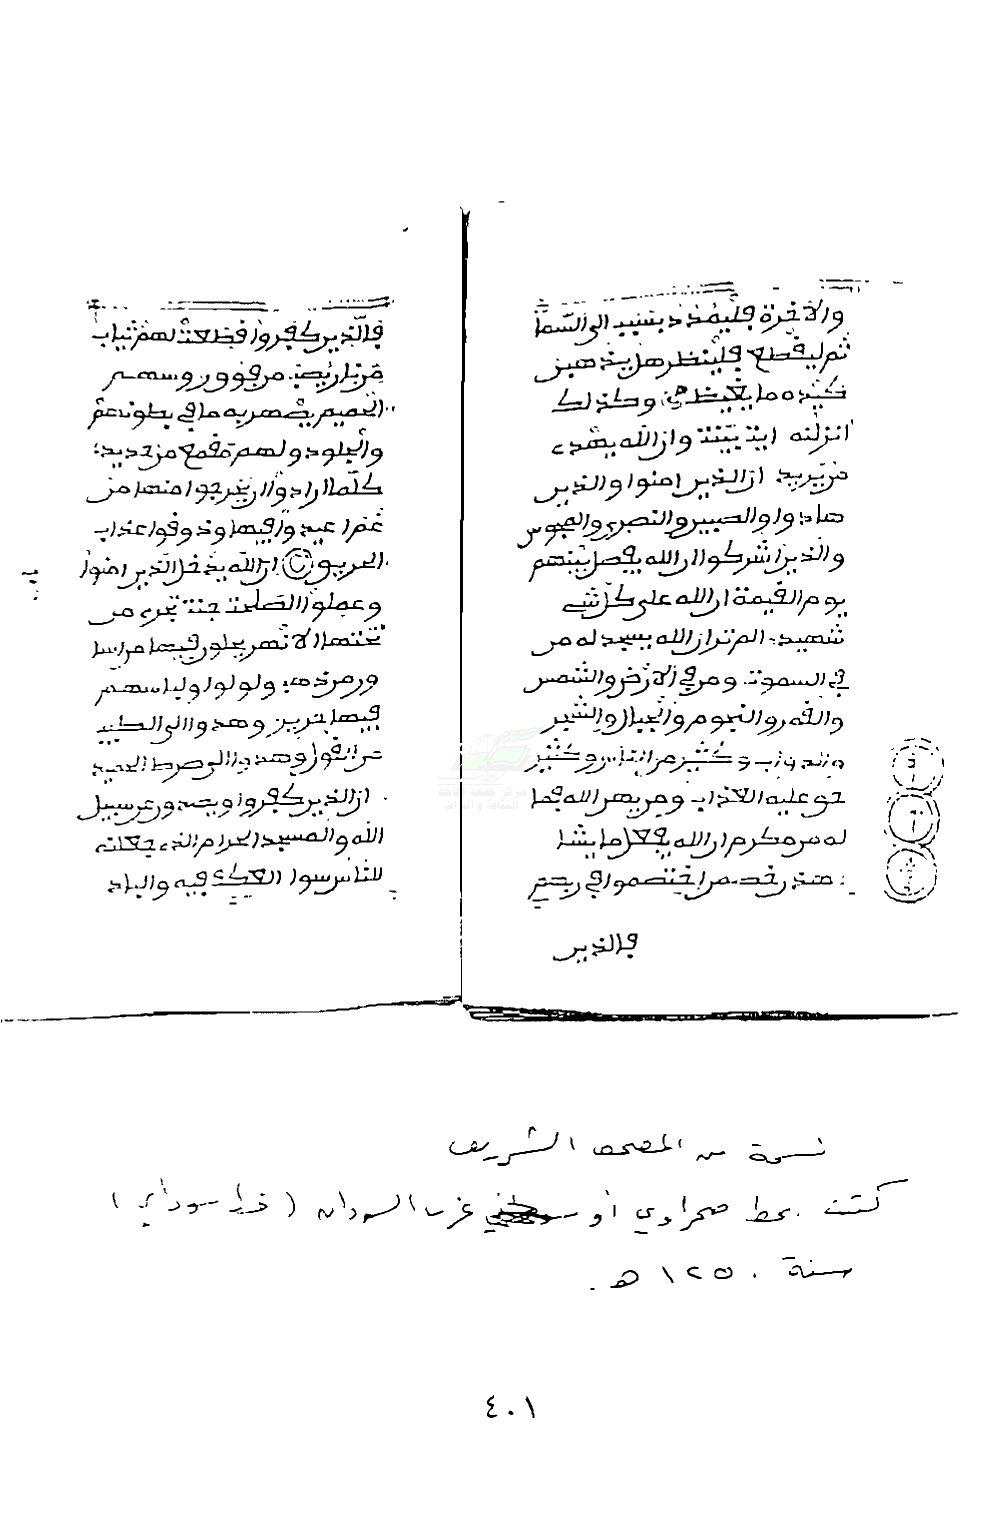 والاخرة فليمدد بسبب الى السما
ثم ليقطع فلينظر هل يذهبن
كيده ما يغيظ وكذلك
انزلنه ايت بينت وان الله يهدى
من يريد ان الذين امنوا والذين
هادوا والصبين والنصرى والمجوس
والذين اشركوا ان الله يفصل بينهم
يوم القيمة ان الله على كل شى
شهيد الم تر ان الله يسجد له من
فى السموت ومن فى الارض والشمس
والقمر والنجوم والجبال والشجر
والدواب وكثير من الناس وكثير
حق عليه العذاب ومن يهن الله فما
له من مكرم ان الله يفعل ما يشا
هذن خصمن اختصموا فى ربهم
فالذين
فالذين كفروا قطعت لهم ثياب
من نار يصب من فوق روسهم
الحميم يصهر به ما فى بطونهم
والجلود ولهم مقمع من حديد
كلما ارادوا ان يخرجوا منها من
غم اعيدوا فيها وذوقوا عذاب
الحريق ان الله يدخل الذين امنوا
وعملوا الصلحت جنت تجرى من
تحتها الانهر يحلون فيها من اسا
ور من ذهب ولولوا ولباسهم
فيها حرير وهدوا الى الطيب
من القول وهدوا الى صرط الحميد
ان الذين كفروا ويصدون عن سبيل
الله والمسجد الحرام الذى جعلنه
للناس سوا العكف فيه والباد
نسخة من المصحف الشريف
كتبت بخط صحراوي أو غرب السودان (خط سوداني)
سنة ١٢٥٠ هـ.
٤٠١